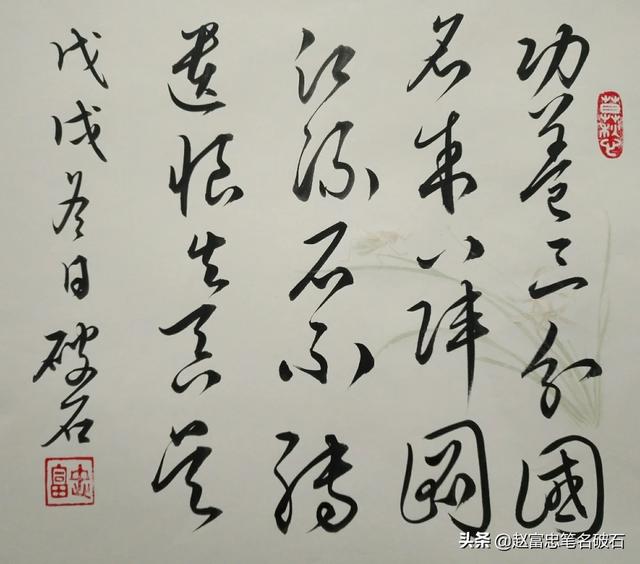 功蓋三分國
名成八陣圖
江流石不轉
遺恨失吞吳
戊戌冬日破石
头条 @赵富忠笔名破石